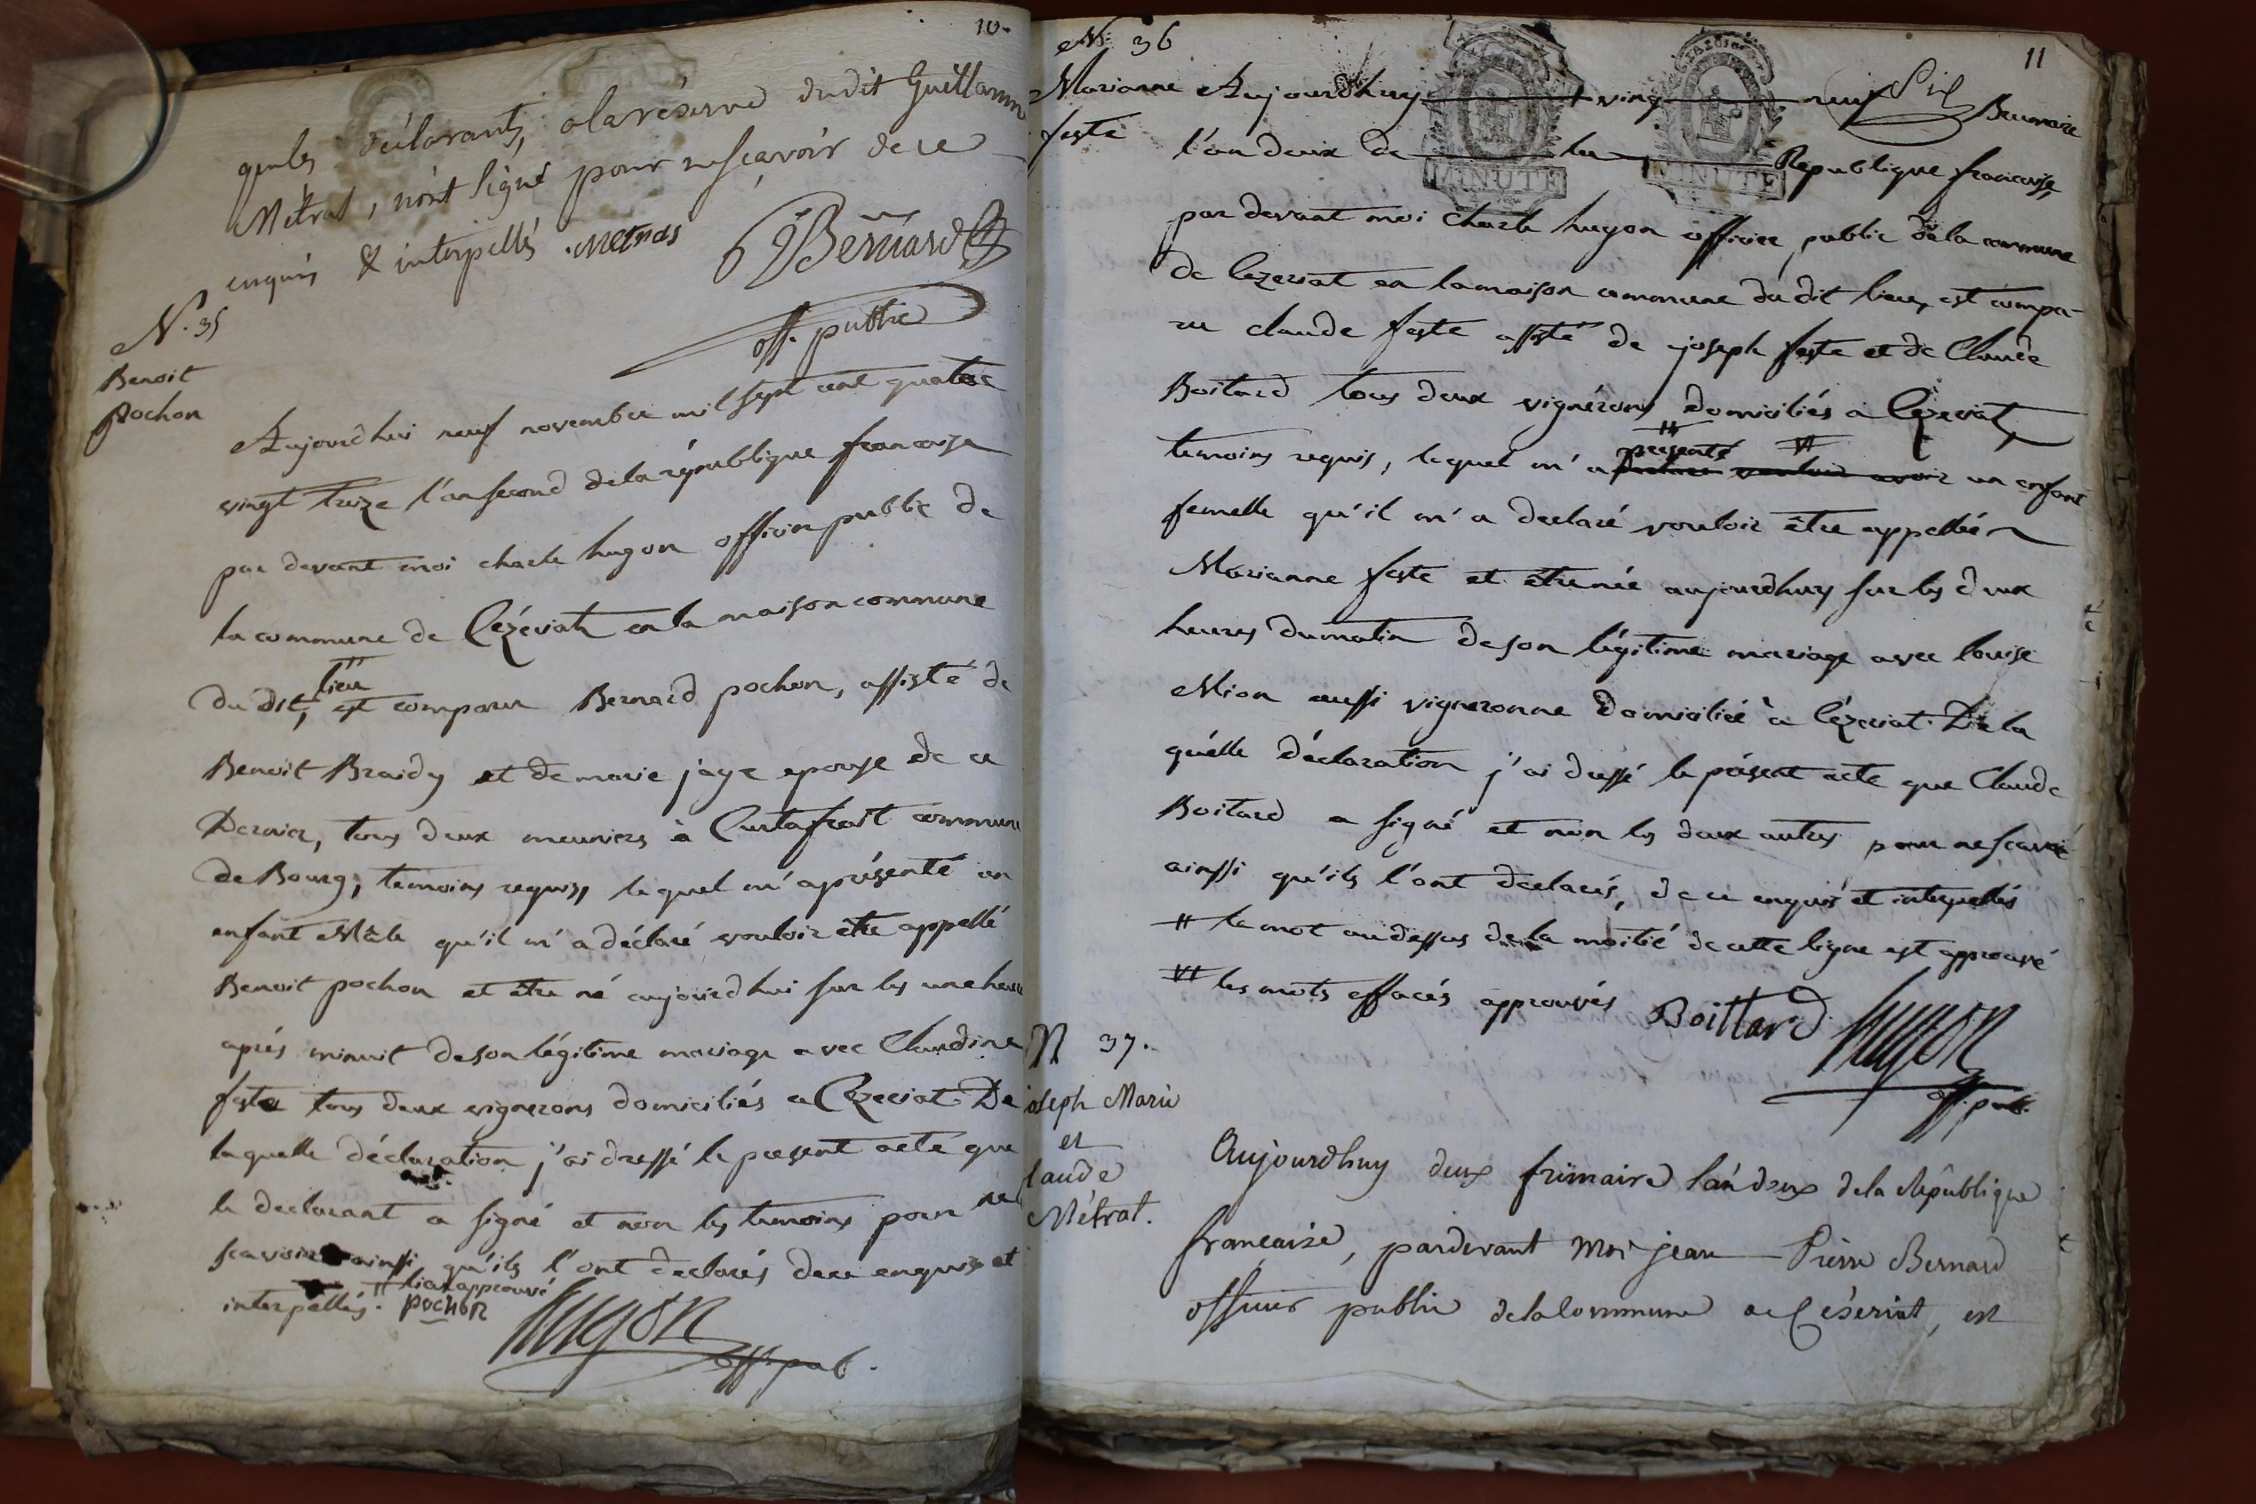 10.
quels déclarants, a la réserve dudit Guillaume
Métrat, n'ont signé pour ne sçavoir de ce
enquis & interpellés. Metras
Bernard
off. public
N. 35
Benoit
pochon
Aujourdhui neuf novembre mil sept cent quatre
vingt treize l'an second de la république francoise
par devant moi charle hugon officier public de
la commune de Cézériat en la maison commune
du dit, lieu est comparu Bernard pochon, assisté de
Benoit Braidy et de marie jaye epouse de ce
Dernier, tous deux meuniers à Curtafrait commune
de Bourg, temoins requis, lequel m'a présenté un
enfant Mâle qu'il m'a déclaré vouloir être appellé
Benoit pochon et être né aujourdhui sur les une heure
aprés minuit de son légitime mariage avec Claudine
feste tous deux vignerons domiciliés a Cézeriat. De
laquelle déclaration j'ai dressé le present acte que
le declarant a signé et non les temoins pour ne
scavoir ainssi qu'ils l'ont declarés de ce enquis et
interpellés. # lieu approuvé
pochon
hugon
off. pub.
11
N. 36
Marianne
feste
Aujourdhuy ving neuf Brumaire
l'an deux de la République francoise,
MINUTE
MINUTE
par devant moi charle hugon officier public de la commune
de Cezeriat en la maison commune du dit lieu, est compa-
ru claude feste assisté de joseph feste et de Claude
Boitard tous deux vignérons domiciliés a Cézeriat,
temoins requis, lequel m'a présenté un enfant
femelle qu'il m'a declaré vouloir être appellée
Marianne feste et être née aujourdhuy sur les deux
heures du matin de son légitime mariage avec louise
Mion aussi vigneronne domiciliée à Cézeriat. De la
quelle déclaration j'ai dressé le présent acte que Claude
Boitard a signé et non les deux autres pour ne scavoir
ainssi qu'ils l'ont declarés, de ce enquis et interpellés
# le mot au dessus de la moitié de cette ligne est approuvé
les mots effacés approuvés Boittard hugon
off. pub.
N 37.
joseph Marie
et
laude
Métrat.
Aujourdhuy deux frimaire l'an deux de la République
françaize, pardevant moi jean Pierre Bernard
officier public de la Commune de Céseriat, est